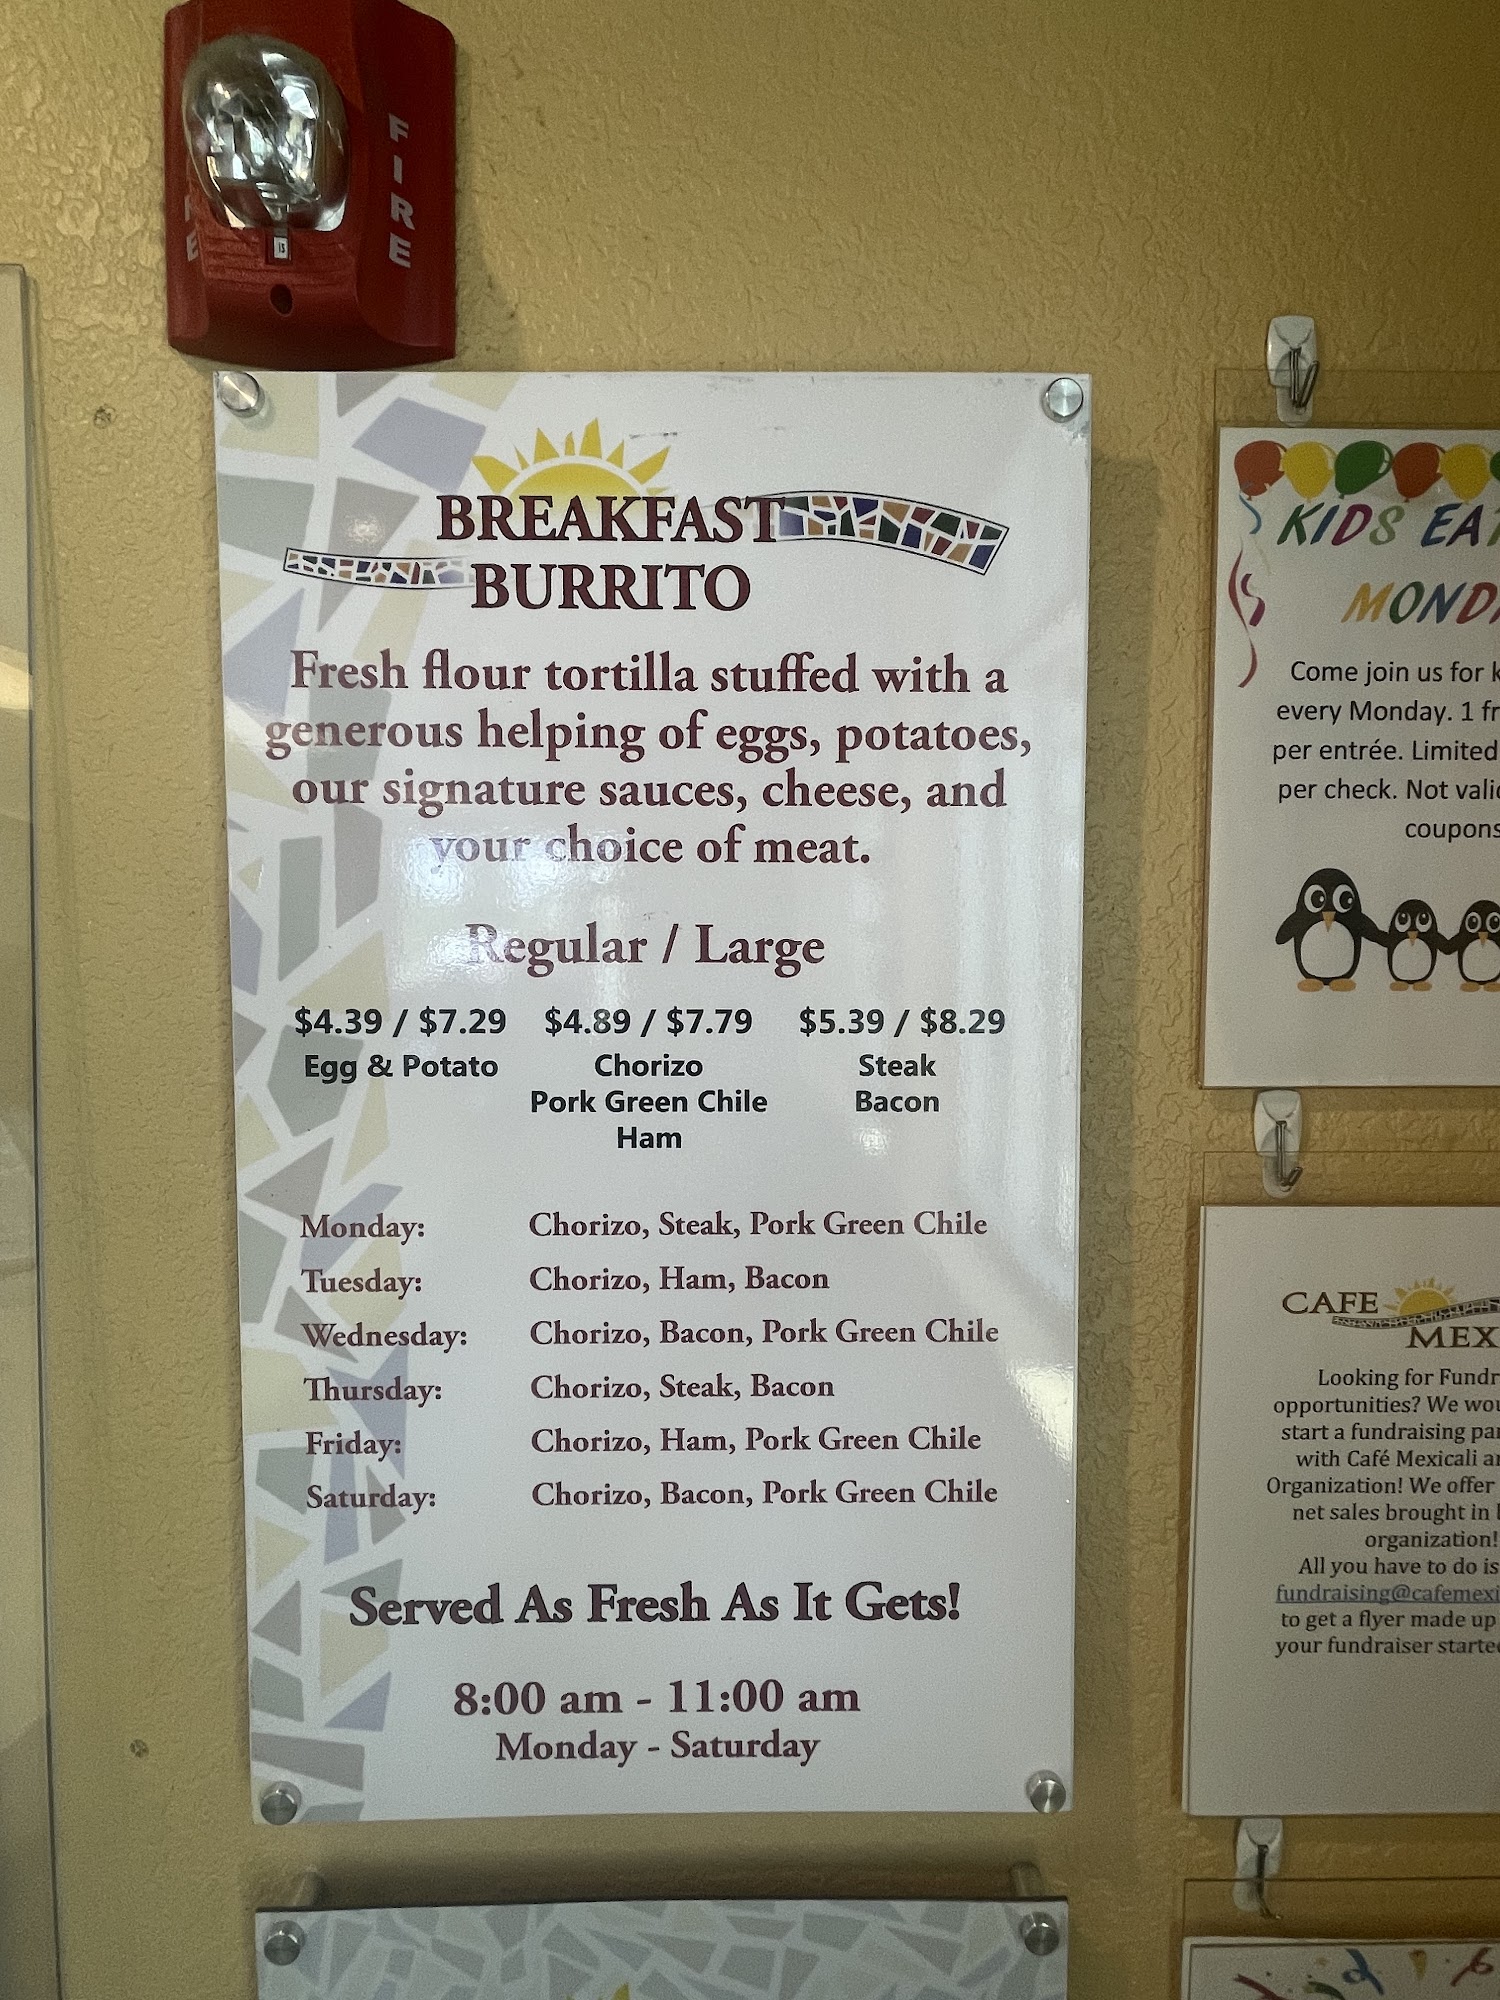 FIRE
BREAKFAST
BURRITO
Fresh flour tortilla stuffed with a
generous helping of eggs, potatoes,
our signature sauces, cheese, and
your choice of meat.
Regular / Large
$4.39 / $7.29 $4.89 / $7.79 $5.39 / $8.29
Egg & Potato Chorizo Steak
Pork Green Chile Bacon
Ham
Monday: Chorizo, Steak, Pork Green Chile
Tuesday: Chorizo, Ham, Bacon
Wednesday: Chorizo, Bacon, Pork Green Chile
Thursday: Chorizo, Steak, Bacon
Friday: Chorizo, Ham, Pork Green Chile
Saturday: Chorizo, Bacon, Pork Green Chile
Served As Fresh As It Gets!
8:00 am - 11:00 am
Monday - Saturday
KIDS
Come join us for
every Monday. 1
per entrée. Limited
per check. Not
coupons
CAFE
Looking for
opportunities? We
start a fundraising
with Café Mexicali
Organization! We offer
net sales brought in
organization!
All you have to do is
to get a flyer made up
your fundraiser